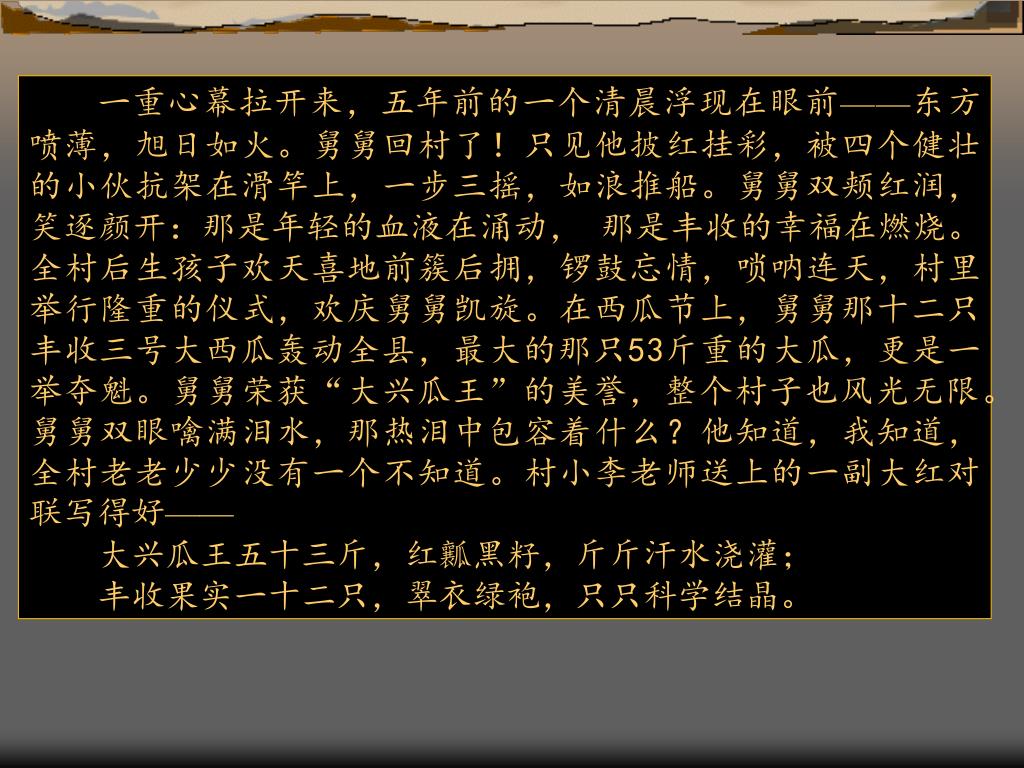 一重心幕拉开来，五年前的一个清晨浮现在眼前——东方
喷薄，旭日如火。舅舅回村了！只见他披红挂彩，被四个健壮
的小伙抗架在滑竿上，一步三摇，如浪推船。舅舅双颊红润，
笑逐颜开：那是年轻的血液在涌动， 那是丰收的幸福在燃烧。
全村后生孩子欢天喜地前簇后拥，锣鼓忘情，唢呐连天，村里
举行隆重的仪式，欢庆舅舅凯旋。在西瓜节上，舅舅那十二只
丰收三号大西瓜轰动全县，最大的那只53斤重的大瓜，更是一
举夺魁。舅舅荣获“大兴瓜王”的美誉，整个村子也风光无限。
舅舅双眼噙满泪水，那热泪中包容着什么？他知道，我知道，
全村老老少少没有一个不知道。村小李老师送上的一副大红对
联写得好——
大兴瓜王五十三斤，红瓤黑籽，斤斤汗水浇灌；
丰收果实一十二只，翠衣绿袍，只只科学结晶。